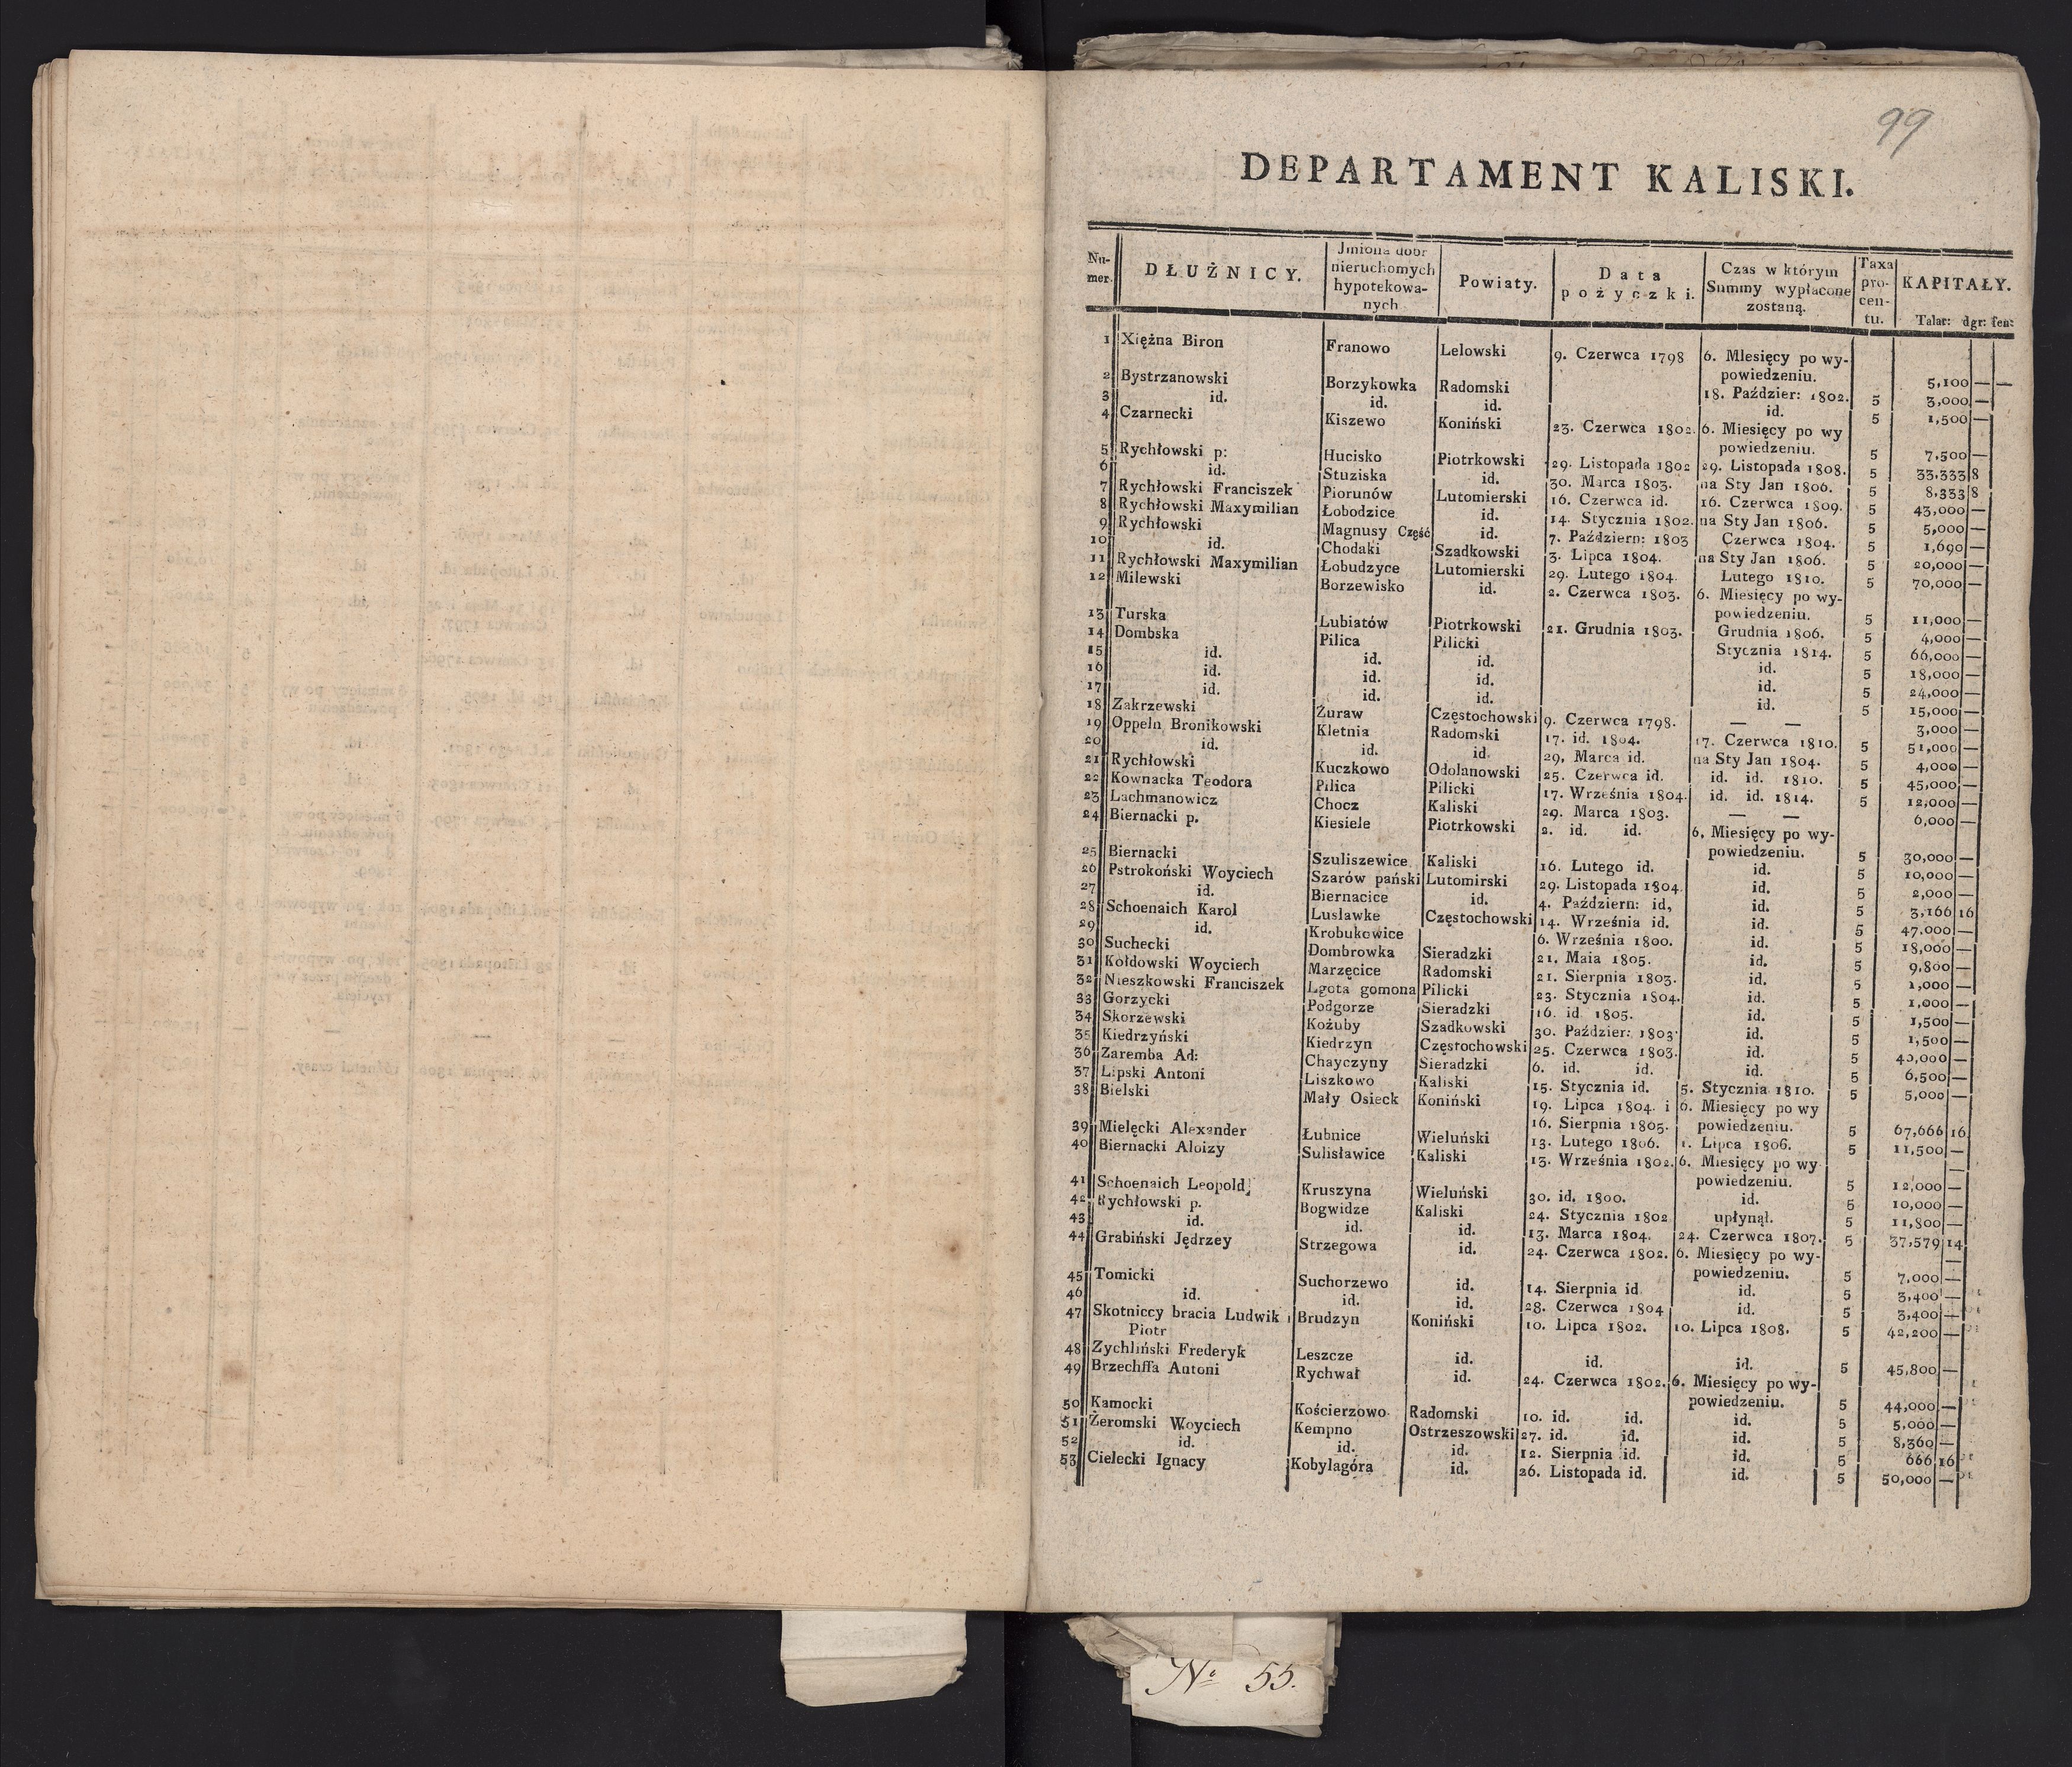 99
DEPARTAMENT KALISKI.
Nu-mer. DŁUŻNICY. Jmiona dobr nieruchomych hypotekowa-nych Powiaty. Data pożyczki. Czas w którym Summy wypłacone zostaną. Taxa pro-cen-tu. KAPITAŁY. Talar: dgr: fen:
1 Xiężna Biron Franowo Lelowski 9. Czerwca 1798 6. Miesięcy po wy-
powiedzeniu. 5,100 — —
2 Bystrzanowski Borzykowka Radomski 18. Paździer: 1802. 5 3,000 —
3 id. id. id. id. 5 1,500 —
4 Czarnecki Kiszewo Koniński 23. Czerwca 1802. 6. Miesięcy po wy
powiedzeniu. 5 7,500 —
5 Rychłowski p: Hucisko Piotrkowski 29. Listopada 1802 29. Listopada 1808. 5 33,333 8
6 id. Stuziska id. 30. Marca 1803. na Sty Jan 1806. 5 8,333 8
7 Rychłowski Franciszek Piorunów Lutomierski 16. Czerwca id. 16. Czerwca 1809. 5 43,000 —
8 Rychłowski Maxymilian Łobodzice id. 14. Stycznia 1802. na Sty Jan 1806. 5 5,000 —
9 Rychłowski Magnusy Część id. 7. Październ: 1803 Czerwca 1804. 5 1,690 —
10 id. Chodaki Szadkowski 3. Lipca 1804. na Sty Jan 1806. 5 20,000 —
11 Rychłowski Maxymilian Łobudzyce Lutomierski 29. Lutego 1804. Lutego 1810. 5 70,000 —
12 Milewski Borzewisko id. 2. Czerwca 1803. 6. Miesięcy po wy-
powiedzeniu. 5 11,000 —
13 Turska Lubiatów Piotrkowski 21. Grudnia 1803. Grudnia 1806. 5 4,000 —
14 Dombska Pilica Pilicki Stycznia 1814. 5 66,000 —
15 id. id. id. id. 5 18,000 —
16 id. id. id. id. 5 24,000 —
17 id. id. id. id. 5 15,000 —
18 Zakrzewski Żuraw Częstochowski 9. Czerwca 1798. — — 3,000 —
19 Oppeln Bronikowski Kletnia Radomski 17. id. 1804. 17. Czerwca 1810. 5 51,000 —
20 id. id. id. 29. Marca id. na Sty Jan 1804. 5 4,000 —
21 Rychłowski Kuczkowo Odolanowski 25. Czerwca id. id. id. 1810. 5 45,000 —
22 Kownacka Teodora Pilica Pilicki 17. Września 1804. id. id. 1814. 5 12,000 —
23 Lachmanowicz Chocz Kaliski 29. Marca 1803. — — 6,000 —
24 Biernacki p. Kiesiele Piotrkowski 2. id. id. 6. Miesięcy po wy-
powiedzeniu. 5 30,000 —
25 Biernacki Szuliszewice Kaliski 16. Lutego id. id. 5 10,000 —
26 Pstrokoński Woyciech Szarów pański Lutomirski 29. Listopada 1804. id. 5 2,000 —
27 id. Biernacice id. 4. Październ: id, id. 5 3,166 16
28 Schoenaich Karol Luslawke Częstochowski 14. Września id. id. 5 47.000 —
29 id. Krobukowice 6. Września 1800. id. 5 18,000 —
30 Suchecki Dombrowka Sieradzki 21. Maia 1805. id. 5 9,800 —
31 Kołdowski Woyciech Marzęcice Radomski 21. Sierpnia 1803. id. 5 1,000 —
32 Nieszkowski Franciszek Lgota gomona Pilicki 23. Stycznia 1804. id. 5 1,000 —
33 Gorzycki Podgorze Sieradzki 16. id 1805. id. 5 1,500 —
34 Skorzewski Kożuby Szadkowski 30. Paździer: 1803 id. 5 1,500 —
35 Kiedrzyński Kiedrzyn Częstochowski 25. Czerwca 1803. id. 5 40,000 —
36 Zaremba Ad: Chayczyny Sieradzki 6. id. id. id. 5 6,500 —
37 Lipski Antoni Liszkowo Kaliski 15. Stycznia id. 5. Stycznia 1810. 5 5,000 —
38 Bielski Mały Osieck Koniński 19. Lipca 1804. i 6. Miesięcy po wy
16. Sierpnia 1805. powiedzeniu. 5 67,666 16
39 Mielęcki Alexander Łubnice Wieluński 13. Lutego 1806. 1. Lipca 1806. 5 11,500 —
40 Biernacki Aloizy Sulisławice Kaliski 13. Września 1802. 6. Miesięcy po wy
powiedzeniu. 5 12,000 —
41 Schoenaich Leopold Kruszyna Wieluński 30. id. 1800. id. 5 10,000 —
42 Rychłowski p. Bogwidze Kaliski 24. Stycznia 1802 upłynął. 5 11,800 —
43 id. id. id. 13. Marca 1804. 24. Czerwca 1807. 5 37,579 14
44 Grabiński Jędrzey Strzegowa id. 24. Czerwca 1802. 6. Miesięcy po wy-
powiedzeniu. 5 7,000 —
45 Tomicki Suchorzewo id. 14. Sierpnia id id. 5 3,400 —
46 id. id. id. 28. Czerwca 1804 id. 5 3,400 —
47 Skotniccy bracia Ludwik i Brudzyn Koniński 10. Lipca 1802. 10. Lipca 1808. 5 42,200 —
Piotr
48 Zychliński Frederyk Leszcze id. id. id. 5 45,800 —
49 Brzechffa Antoni Rychwał id. 24. Czerwca 1802. 6. Miesięcy po wy-
powiedzeniu. 5 44,000 —
50 Kamocki Kościerzowo Radomski 10. id. id. id. 5 5,000 —
51 Żeromski Woyciech Kempno Ostrzeszowski 27. id. id. id. 5 8,360 —
52 id. id. id. 12. Sierpnia id. id. 5 666 16
53 Cielecki Ignacy Kobylagóra id. 26. Listopada id. id. 5 50,000 —
No 55.